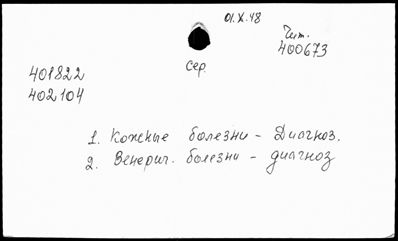 01.X.48
Чит.
400673
Сер.
401822
402104
1. Кожные болезни - Диагноз.
2. Венерич. болезни - диагноз